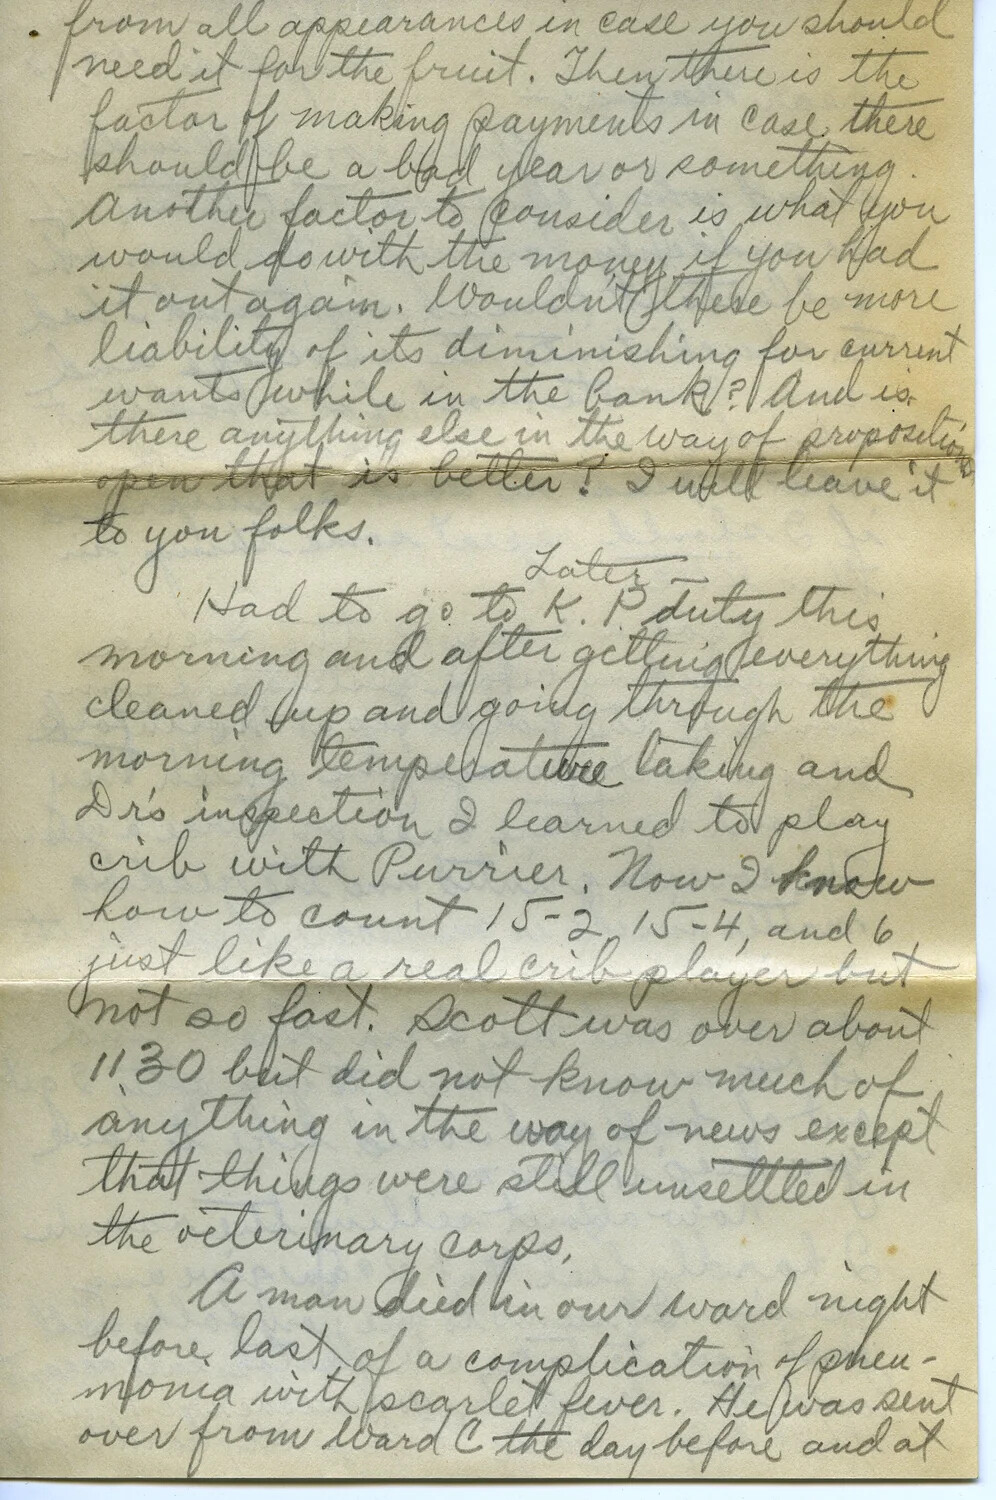 from all appearances in case you should
need it for the fruit. Then there is the
factor of making payments in case there
should be a bad year or something.
Another factor to consider is what you
would do with the money if you had
it out again. Wouldn't there be more
liability of its diminishing for current
wants while in the bank? And is
there anything else in the way of propositions
open that is better? I will leave it
to you folks.
Later —
Had to go to K. P. duty this
morning and after getting everything
cleaned up and going through the
morning temperature taking and
Dr's inspection I learned to play
crib with Purrier. Now I know
how to count 15-2, 15-4, and 6
just like a real crib player but
not so fast. Scott was over about
1130 but did not know much of
anything in the way of news except
that things were still unsettled in
the veterinary corps.
A man died in our ward night
before last of a complication of pneu-
monia with scarlet fever. He was sent
over from Ward C the day before and at